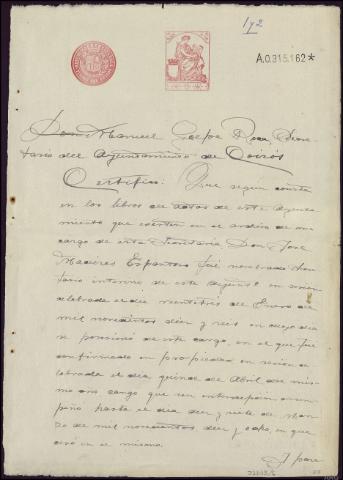 1 y 2
A.0.315.162*
Don Manuel Roca, Secre-
tario del Ayuntamiento de Coirós
Certifico: Que según consta
en los libros de actas de este Ayunta-
miento que existen en el archivo de mi
cargo de esta Secretaría Don José
Maceiras fué nombrado Secre-
tario interino de este Ayunt.º en sesión
celebrada el día veintiséis de Enero de
mil novecientos diez y seis en cuyo día
se posesionó de este cargo, en el que fué
confirmado en propiedad en sesión ce-
lebrada el día quince de Abril del mis-
mo año cargo que sin interrupción desem-
peñó hasta el día diez y siete de Mar-
zo de mil novecientos diez y ocho, en que
cesó en el mismo.
Y para